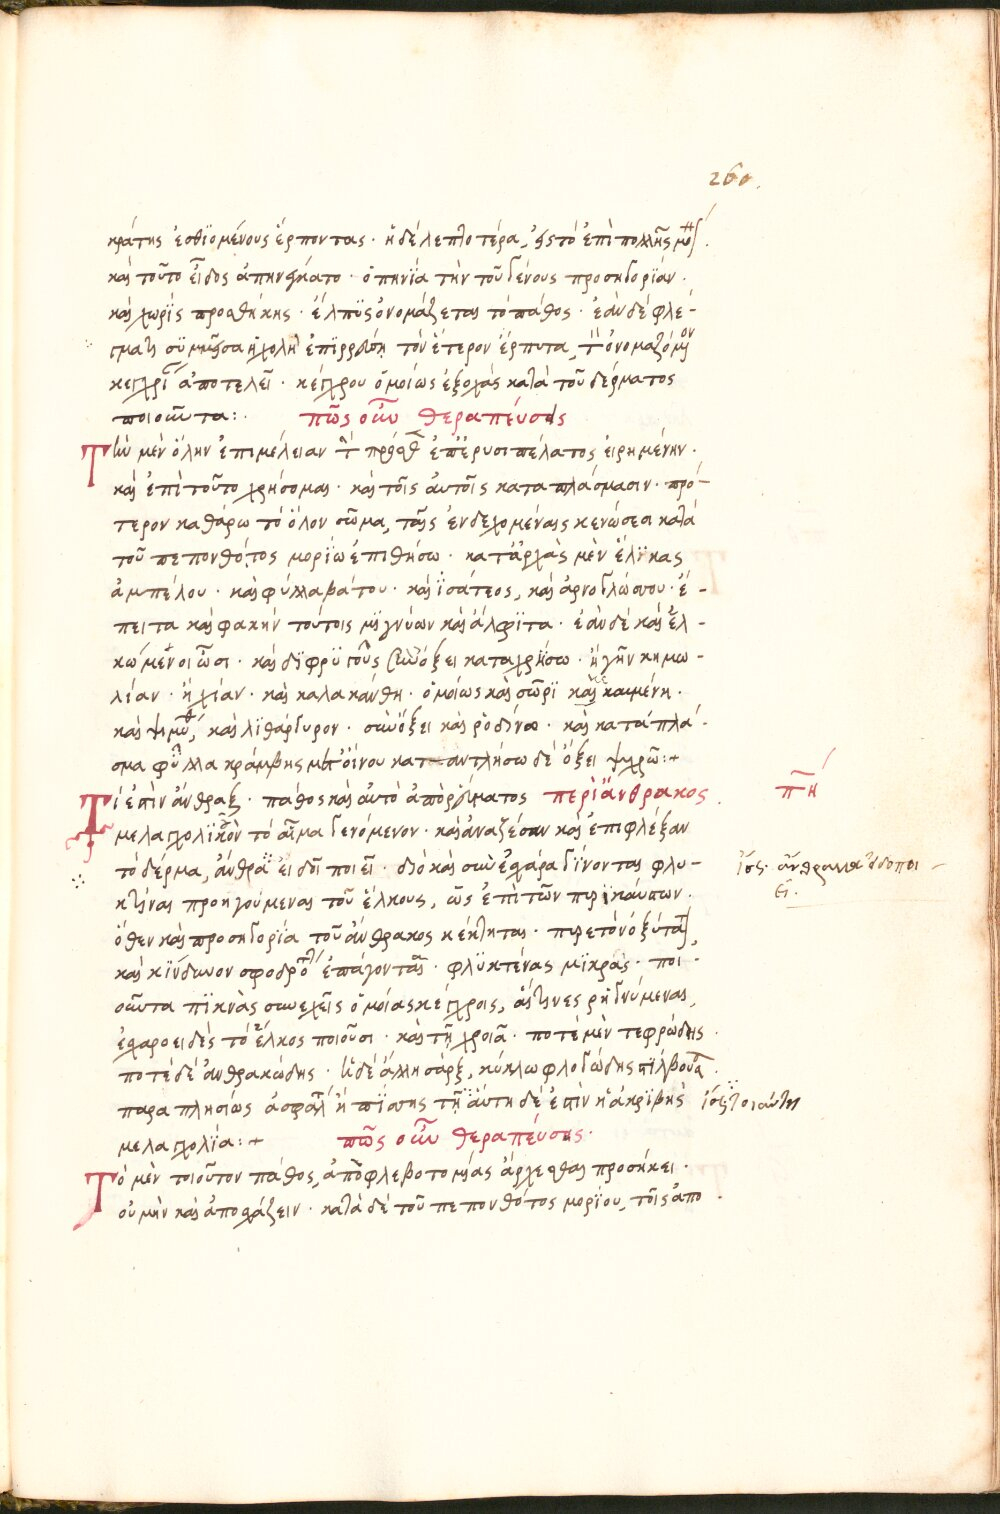 260.
κράτης ἐσθϊομένους ἕρποντας · ἡ δὲ λεπτοτέρα, εἰς τὸ ἐπιπολλῆς
καὶ τοῦτο εἶδος ἀπηνέγκατο · ὁπηνΐα τὴν τοῦ γένους προσηγορίαν ·
καὶ χωρὶς προσθήκης · ἕλπϋς ὀνομάζεται τὸ πάθος · ἐὰν δὲ φλέ-
γματι συμμιγῆσα ἡ χολὴ ἐπιρρυῇ τὸν ἕτερον ἕρπυτα, τ ὀνομαζόμενον
κεγχρί ἀποτελεῖ · κέγχρου ὁμοίως ἐξοχὰς κατὰ τοῦ δέρματος
ποιοῦντα : · πῶς οὖν θεραπεύσεις
Τὴν μὲν ὅλην ἐπιμέλειαν τ ἐπ ἐρυσιπέλατος εἰρημένην ·
καὶ ἐπὶ τοῦτο χρήσομαι · καὶ τοῖς αὐτοῖς καταπλάσμασιν · πρό-
τερον καθάρω τὸ ὅλον σῶμα, ταῖς ἐνδεχομέναις κενώσεσι κατὰ
τοῦ πεπονθότος μορίω ἐπιθήσω · κατ' ἀρχὰς μὲν ἕλϊκας
ἀμπέλου · καὶ φύλλα βάτου · καὶ ϊσάτεος, καὶ ἀρνογλώσσου · ἔ-
πειτα καὶ φακὴν τούτοις μϊγνύων καὶ ἄλφϊτα · ἐὰν δὲ καὶ ἑλ-
κώμενοι ὦσι · καὶ δϊφρϋγοῦς σὺν ὄξει καταχρήσω · ἢ γῆν κημω-
λίαν · ἢ χίαν · καὶ καλακάνθη · ὁμοίως καὶ σῶρϊ καὶ κεκαυμένη ·
καὶ ψϊμύθ, καὶ λϊθάργυρον · σὺν ὄξει καὶ ῥοδίνω · καὶ κατάπλα-
σμα φύλλα κράμβης μετ' οἴνου καταντλήσω δὲ ὄξει ψυχρῶ : +
Τί ἐστὶν ἄνθραξ · πάθος καὶ αὐτὸ ἀπὸ ῥεύματος περὶ ἄνθρακος
πη
μελαγχολϊκὸν τὸ αἷμα γενόμενον · καὶ ἀναζέσαν καὶ ἐπιφλέξαν
τὸ δέρμα, ἄνθρα ειδῆ ποιεῖ · διὸ καὶ σὺν ἐσχάρα γίνονται φλυ-
κτῖναι προηγούμεναι τοῦ ἕλκους, ὡς ἐπὶ τῶν πυρϊκαύστων ·
ὅθεν καὶ προσηγορία τοῦ ἄνθρακος κέκληται · πυρετὸν ὀξύτα,
καὶ κϊνδυνον σφοδρό ἐπάγονται · φλϋκτένας μϊκρὰς · ποι-
οῦντα πϊκνὰς συνεχεῖς ὁμοίας κέγχροις, αἵτινες ῥηγνύμεναι,
ἐσχαροειδὲς τὸ ἕλκος ποιοῦσι · καὶ τῇ χροιᾷ · ποτὲ μὲν τεφρώδης ·
ποτὲ δὲ ἀνθρακώδης · ἡ δὲ ἄλλη σάρξ, κύκλω φλογώδης στϊλβοῦσα
παραπλησίως ἀσφαλ ἢ πίσσης τῇ αὐτῇ δὲ ἐστὶν ἡ ἀκρϊβὴς
μελαγχολία : + πῶς οὖν θεραπεύσεις ·
Τὸ μὲν τοιοῦτον πάθος, ἀπὸ φλεβοτομίας ἄρχεσθαι προσήκει ·
οὐ μὴν καὶ ἀποσχάζειν · κατὰ δὲ τοῦ πεπονθότος μορίου, τοῖς ἀπο